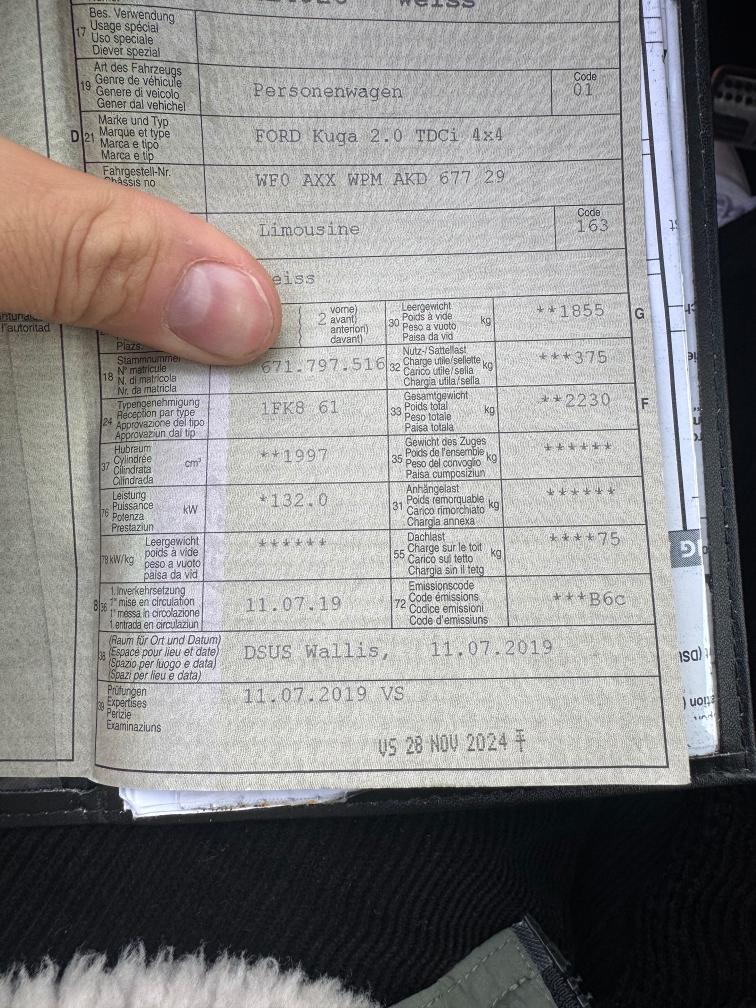 weiss
17
Bes. Verwendung
Usage spécial
Uso speciale
Diever spezial
19
Art des Fahrzeugs
Genre de véhicule
Genere di veicolo
Gener dal vehichel
Personenwagen
Code
01
D 21
Marke und Typ
Marque et type
Marca e tipo
Marca e tip
FORD Kuga 2.0 TDCi 4x4
Fahrgestell-Nr.
Châssis no
WF0 AXX WPM AKD 677 29
Limousine
Code
163
eiss
l'autoritad
Plazs
2
vorne)
avant)
anteriori)
davant)
30
Leergewicht
Poids à vide
Peso a vuoto
Paisa da vid
kg
**1855
G
18
Stammnummer
N° matricule
N. di matricola
Nr. da matricla
671.797.516
32
Nutz-/Sattellast
Charge utile/sellette
Carico utile/sella
Chargia utila/sella
kg
***375
24
Typengenehmigung
Réception par type
Approvazione del tipo
Approvaziun dal tip
1FK8 61
33
Gesamtgewicht
Poids total
Peso totale
Paisa totala
kg
**2230
F
37
Hubraum
Cylindrée
Cilindrata
Cilindrada
cm³
**1997
35
Gewicht des Zuges
Poids de l'ensemble
Peso del convoglio
Paisa cumposiziun
kg
******
76
Leistung
Puissance
Potenza
Prestaziun
kW
*132.0
31
Anhängelast
Poids remorquable
Carico rimorchiato
Chargia annexa
kg
******
78 kW/kg
Leergewicht
poids à vide
peso a vuoto
paisa da vid
******
55
Dachlast
Charge sur le toit
Carico sul tetto
Chargia sin il tetg
kg
****75
B 36
1. Inverkehrsetzung
1re mise en circulation
1a messa in circolazione
1. entrada en circulaziun
11.07.19
72
Emissionscode
Code émissions
Codice emissioni
Code d'emissiuns
***B6c
38
(Raum für Ort und Datum)
(Espace pour lieu et date)
(Spazio per luogo e data)
(Spazi per lieu e data)
DSUS Wallis, 11.07.2019
39
Prüfungen
Expertises
Perizie
Examinaziuns
11.07.2019 VS
VS 28 NOV 2024